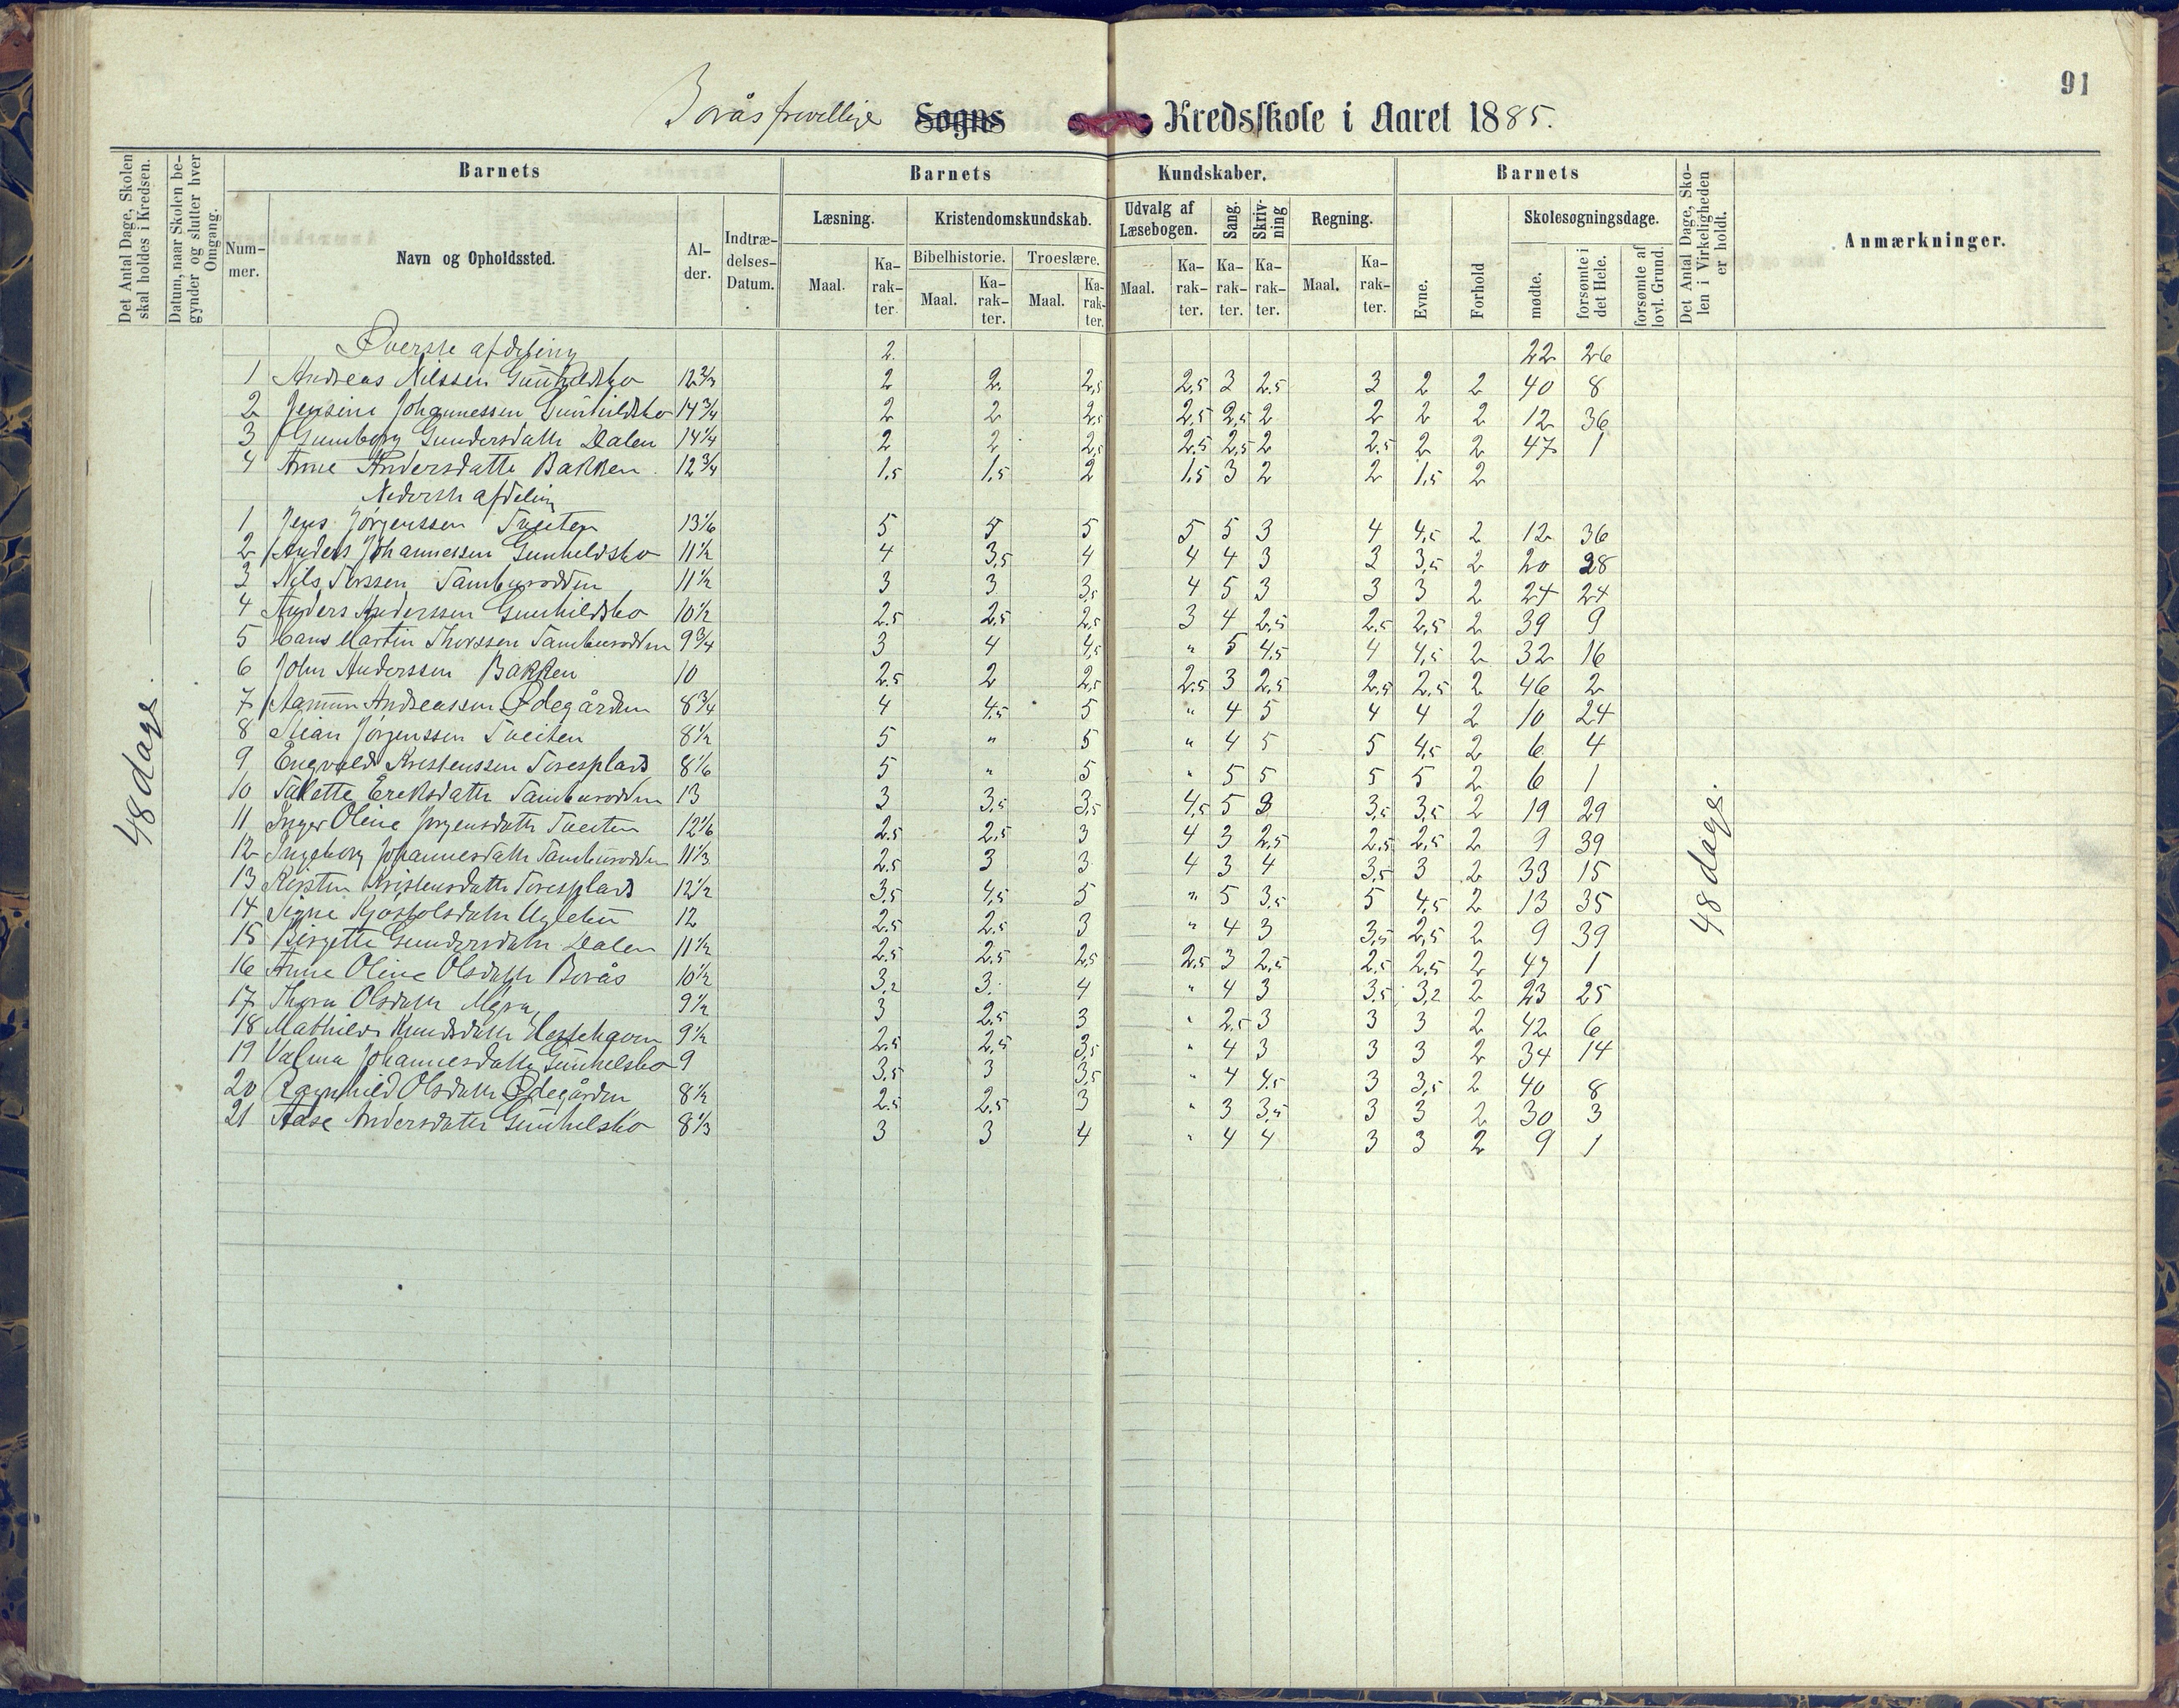 91
Borås frivillige Sogns Kredsskole i Aaret 1885.
Det Antal Dage, Skolen skal holdes i Kredsen.
Datum, naar Skolen begynder og slutter hver Omgang.
Barnets Barnets Kundskaber. Barnets
Nummer. Navn og Opholdssted. Alder. Indtrædelses-Datum.
Læsning. Kristendomskundskab. Udvalg af Læsebogen. Sang. Skrivning Regning. Evne. Forhold Skolesøgningsdage.
Bibelhistorie. Troeslære.
Maal. Karakter. Maal. Karakter. Maal. Karakter. Maal. Karakter. Karakter. Karakter. Maal. Karakter. mødte. forsømte i det Hele. forsømte af lovl. Grund.
Det Antal Dage, Skolen i Virkeligheden er holdt.
Anmærkninger.
48 dage.
48 dage.
Øverste afdeling 2. 22 26
1 Andreas Nilssen Gunhildsbo 12 2/3 2 2 2,5 2,5 3 2.5 3 2 2 40 8
2 Jensine Johannessen Gunhildsbo 14 3/4 2 2 2,5 2,5 2,5 2 2 2 2 12 36
3 Gunnborg Gundersdatte Dalen 14 1/4 2 2 2,5 2.5 2,5 2 2.5 2 2 47 1
4 Anne Andersdatte Bakken 12 3/4 1,5 1,5 2 1,5 3 2 2 1,5 2
Nederste afdeling
1 Jens Jørgenssen Tveiten 13 1/6 5 5 5 5 5 3 4 4,5 2 12 36
2 Anders Johannessen Gunheldsbo 11 1/2 4 3,5 4 4 4 3 3 3,5 2 20 28
3 Nils Torssen Tambursodden 11 1/2 3 3 3,5 4 5 3 3 3 2 24 24
4 Anders Anderssen Gunhildsbo 10 1/2 2.5 2,5 2,5 3 4 2,5 2,5 2,5 2 39 9
5 Hans Martin Thorssen Tambursodden 9 3/4 3 4 4,5 " 5 4,5 4 4,5 2 32 16
6 John Anderssen Bakken 10 2.5 2 2,5 2.5 3 2,5 2,5 2,5 2 46 2
7 Aamun Andreassen Ødegården 8 3/4 4 4,5 5 " 4 5 4 4 2 10 24
8 Stian Jørgenssen Tveiten 8 1/2 5 " 5 " 4 5 5 4,5 2 6 4
9 Engvald Kristenssen Toresplads 8 1/6 5 " 5 " 5 5 5 5 2 6 1
10 Talette Ereksdatte Tambursodden 13 3 3,5 3,5 4,5 5 3 3,5 3,5 2 19 29
11 Inger Oline Jorgensdatte Tveiten 12 1/6 2.5 2,5 3 4 3 2,5 2.5 2,5 2 9 39
12 Ingeborg Johannesdatte Tambursodden 11 1/3 2.5 3 3 4 3 4 3,5 3 2 33 15
13 Kirsten Kristensdatte Toresplads 12 1/2 3,5 4,5 5 " 5 3,5 5 4,5 2 13 35
14 Signe 12 2.5 2.5 3 " 4 3 3,5 2,5 2 9 39
15 Birgette Gundersdatte Dalen 11 1/2 2.5 2.5 2,5 2,5 3 2,5 2,5 2,5 2 47 1
16 Anne Oline Olsdatte Borås 10 1/2 3,2 3. 4 " 4 3 3,5 3,2 2 23 25
17 Thora Olsdatte Myra 9 1/2 3 2.5 3 " 2,5 3 3 3 2 42 6
18 Mathilde Knudsdatte Hestehaven 9 1/2 2.5 2,5 3,5 " 4 3 3 3 2 34 14
19 Valma Johannesdatte Gunhelsbo 9 3,5 3 3,5 " 4 4,5 3 3,5 2 40 8
20 Ragnhild Olsdatte Ødegården 8 1/2 2.5 2,5 3 " 3 3,5 3 3 2 30 3
21 Aase Andersdatte Gunhelsbo 8 1/3 3 3 4 " 4 4 3 3 2 9 1